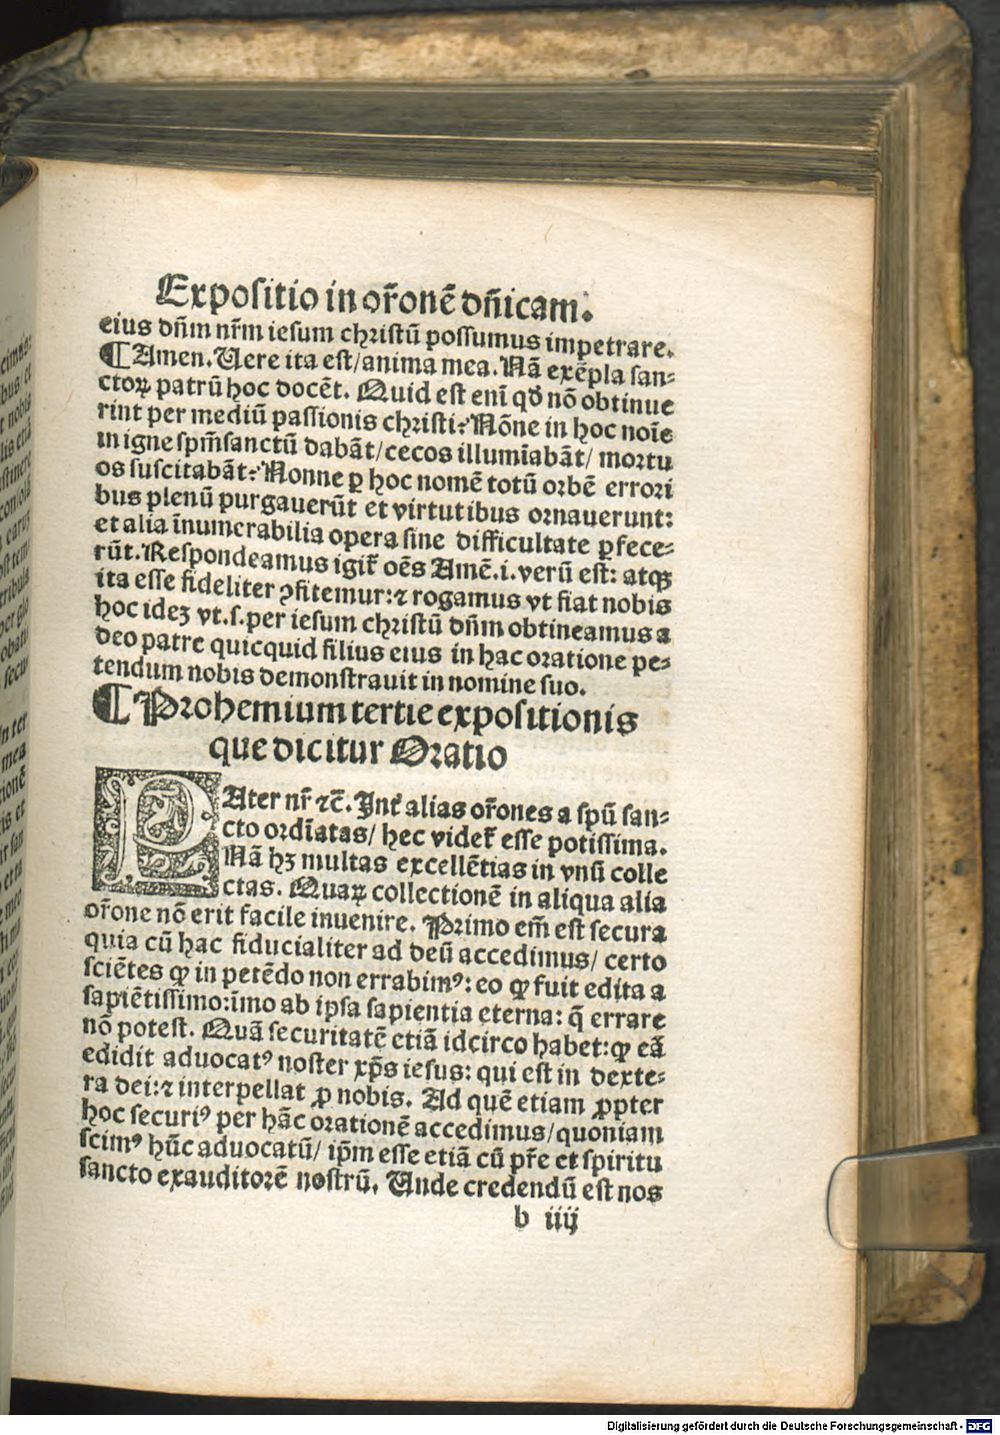 Expositio in or̃onē dñicam.
eius dñm nr̃m iesum christū possumus impetrare.
¶Amen. Uere ita est/anima mea. Nā exēpla san⸗
ctoꝝ patrū hoc docēt. Quid est enī qd̓ nō obtinue
rint per mediū passionis christi? Nōne in hoc noīe
in igne spm̄sanctū dabāt/cecos illumīabāt/ mortu
os suscitabāt? Nonne ꝑ hoc nomē totū orbē errori
bus plenū purgauerūt et virtutibus ornauerunt:
et alia īnumerabilia opera sine difficultate ꝑfece⸗
rūt. Respondeamus igit̃ oēs Amē.i.verū est: atqꝫ
ita esse fideliter ꝓfitemur:⁊ rogamus vt fiat nobis
hoc ideꝫ vt.s.per iesum christū dñm obtineamus a
deo patre quicquid filius eius in hac oratione pe⸗
tendum nobis demonstrauit in nomine suo.
¶Prohemium tertie expositionis
que dicitur Oratio
PAter nr̃ ⁊c̄. Int̓ alias or̃ones a spū san⸗
cto ordīatas/ hec videt̃ esse potissima.
Nā hꝫ multas excellētias in vnū colle
ctas. Quaꝝ collectionē in aliqua alia
or̃one nō erit facile inuenire. Primo em̄ est secura
quia cū hac fiducialiter ad deū accedimus/ certo
sciētes ꝙ in petēdo non errabimꝰ: eo ꝙ fuit edita a
sapiētissimo:īmo ab ipsa sapientia eterna: q̄ errare
nō potest. Quā securitatē etiā idcirco habet:ꝙ eā
edidit aduocatꝰ noster xp̄s iesus: qui est in dexte⸗
ra dei:⁊ interpellat ꝓ nobis. Ad quē etiam ꝓpter
hoc securiꝰ per hāc orationē accedimus/quoniam
scimꝰ hūc aduocatū/ ip̄m esse etiā cū pr̃e et spiritu
sancto exauditorē nostrū. Unde credendū est nos
b iiij
Digitalisierung gefördert durch die Deutsche Forschungsgemeinschaft - DFG